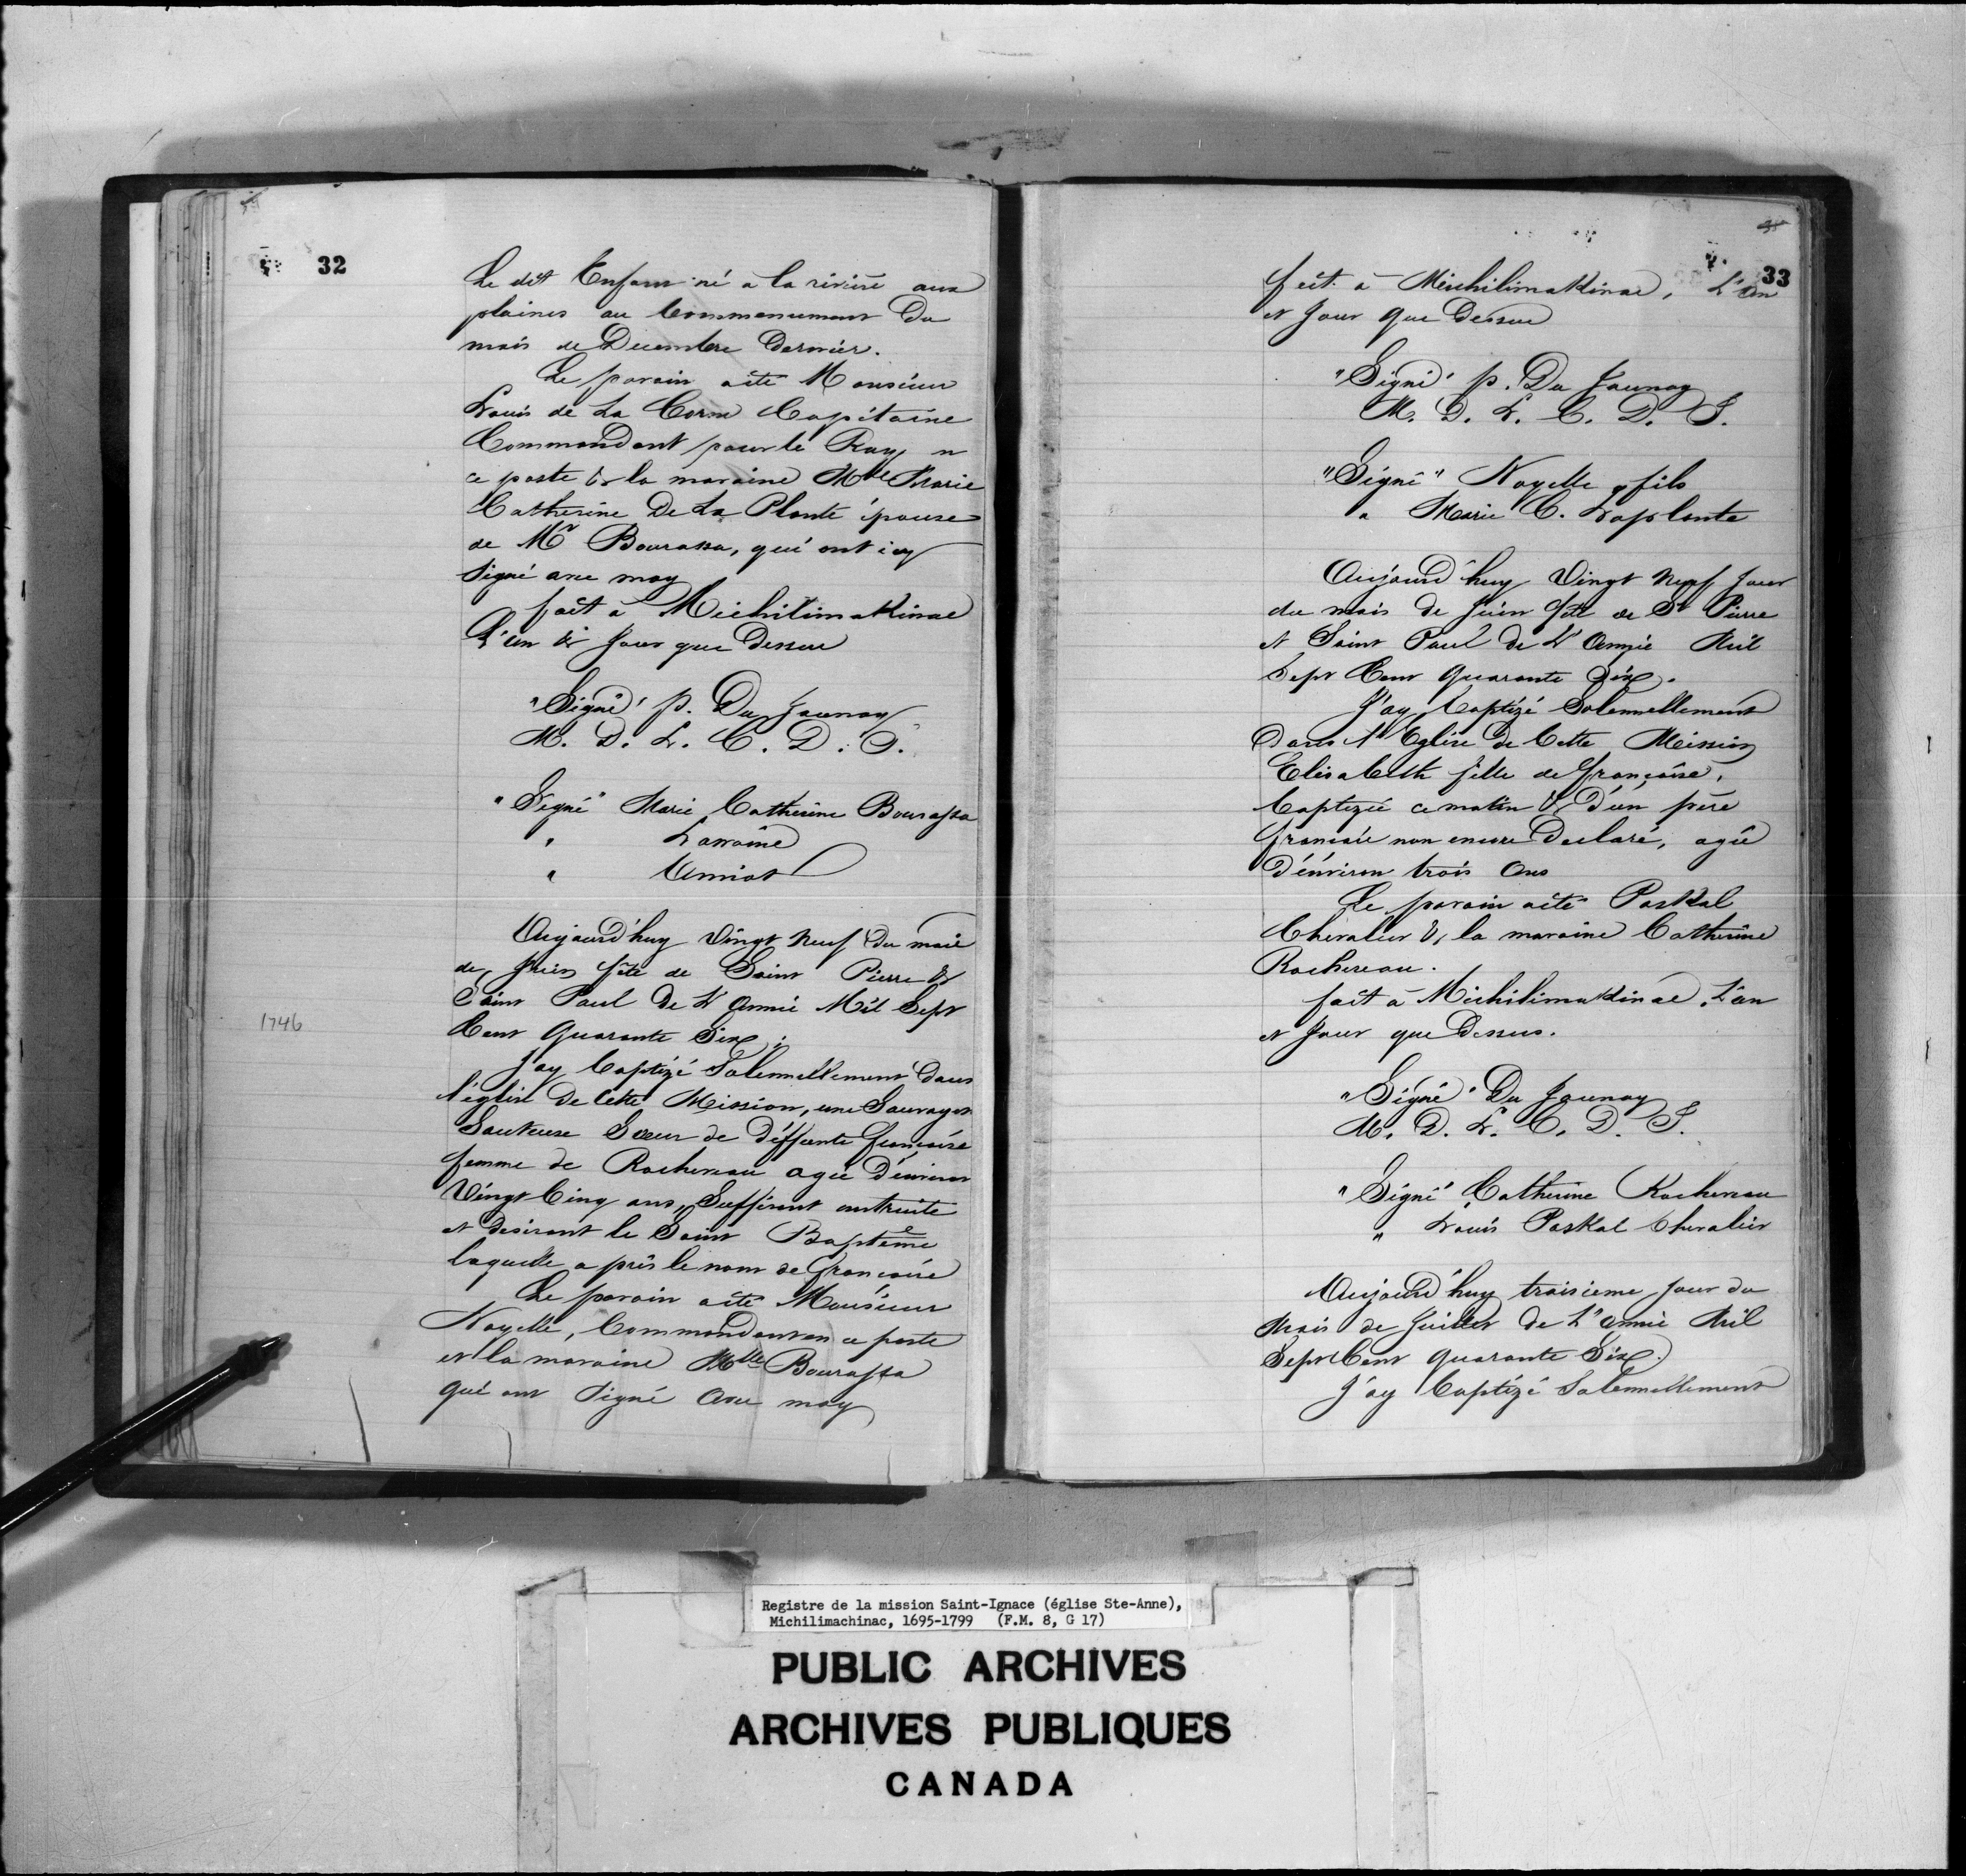 32
Le dit Enfant né a la rivière aux
plaines au Commencement Du
mois de Decembre Dernier.
Le parain aété Monsieur
Louis de La Corne Capitaine
Commandant pour le Roy en
ce poste & la maraine Mlle Marie
Catherine De La Plante épouse
de Mr Bourassa, qui ont icy
Signé avec moy
fait à Michilimakinac
L'an & Jour que Dessus
"Signé" p. Du Jaunay
M. D. L. C. D. J.
"Signé" Marie Catherine Bourassa
" Lorraine
" Amiot
Aujourd'huy Vingt Neuf Du mois
de Juin fête de Saint Pierre &
Saint Paul De L'année Mil Sept
Cent Quarante Six;
1746
J'ay baptizé Solemnellement dans
l'église De Cette Mission, une Sauvagesse
Sauteuse Soeur de deffunte françoise
femme de Rochereau agée D'environ
Vingt Cinq ans, Suffisent instruite
et desirant le Saint Baptême
laquelle a pris le nom de françoise
Le parain aété Monsieur
Noyelle, Commandant en ce poste
et la maraine Mlle Bourassa
qui ont Signé avec moy
33
fait à Michilimakinac, L'an
et Jour Que Dessus
"Signé" p. Du Jaunay
M. D. L. C. D. J.
"Signé" Noyelle, fils
" Marie C. Laplante
Aujourd'huy Vingt Neuf Jour
du mois de Juin fête de St Pierre
et Saint Paul De L'Année Mil
Sept Cent Quarante Six.
J'ay baptizé Solemnellement
Dans l'Eglise de Cette Mission
Elisabeth fille de françoise,
baptizée ce matin & D'un père
françois non encore Declaré, agée
D'environ trois ans
Le parain aété Paskal
Chevalier & la maraine Catherine
Rochereau.
fait à Michilimakinac, L'an
et Jour que Dessus.
"Signé" Du Jaunay
M. D. L. C. D. J.
"Signé" Catherine Rochereau
" Louis Paskal Chevalier
Aujourd'huy troisieme Jour du
Mois de Juillet De L'année Mil
Sept Cent Quarante Six.
J'ay baptizé Solemnellement
Registre de la mission Saint-Ignace (église Ste-Anne),
Michilimachinac, 1695-1799 (F.M. 8, G 17)
PUBLIC ARCHIVES
ARCHIVES PUBLIQUES
CANADA